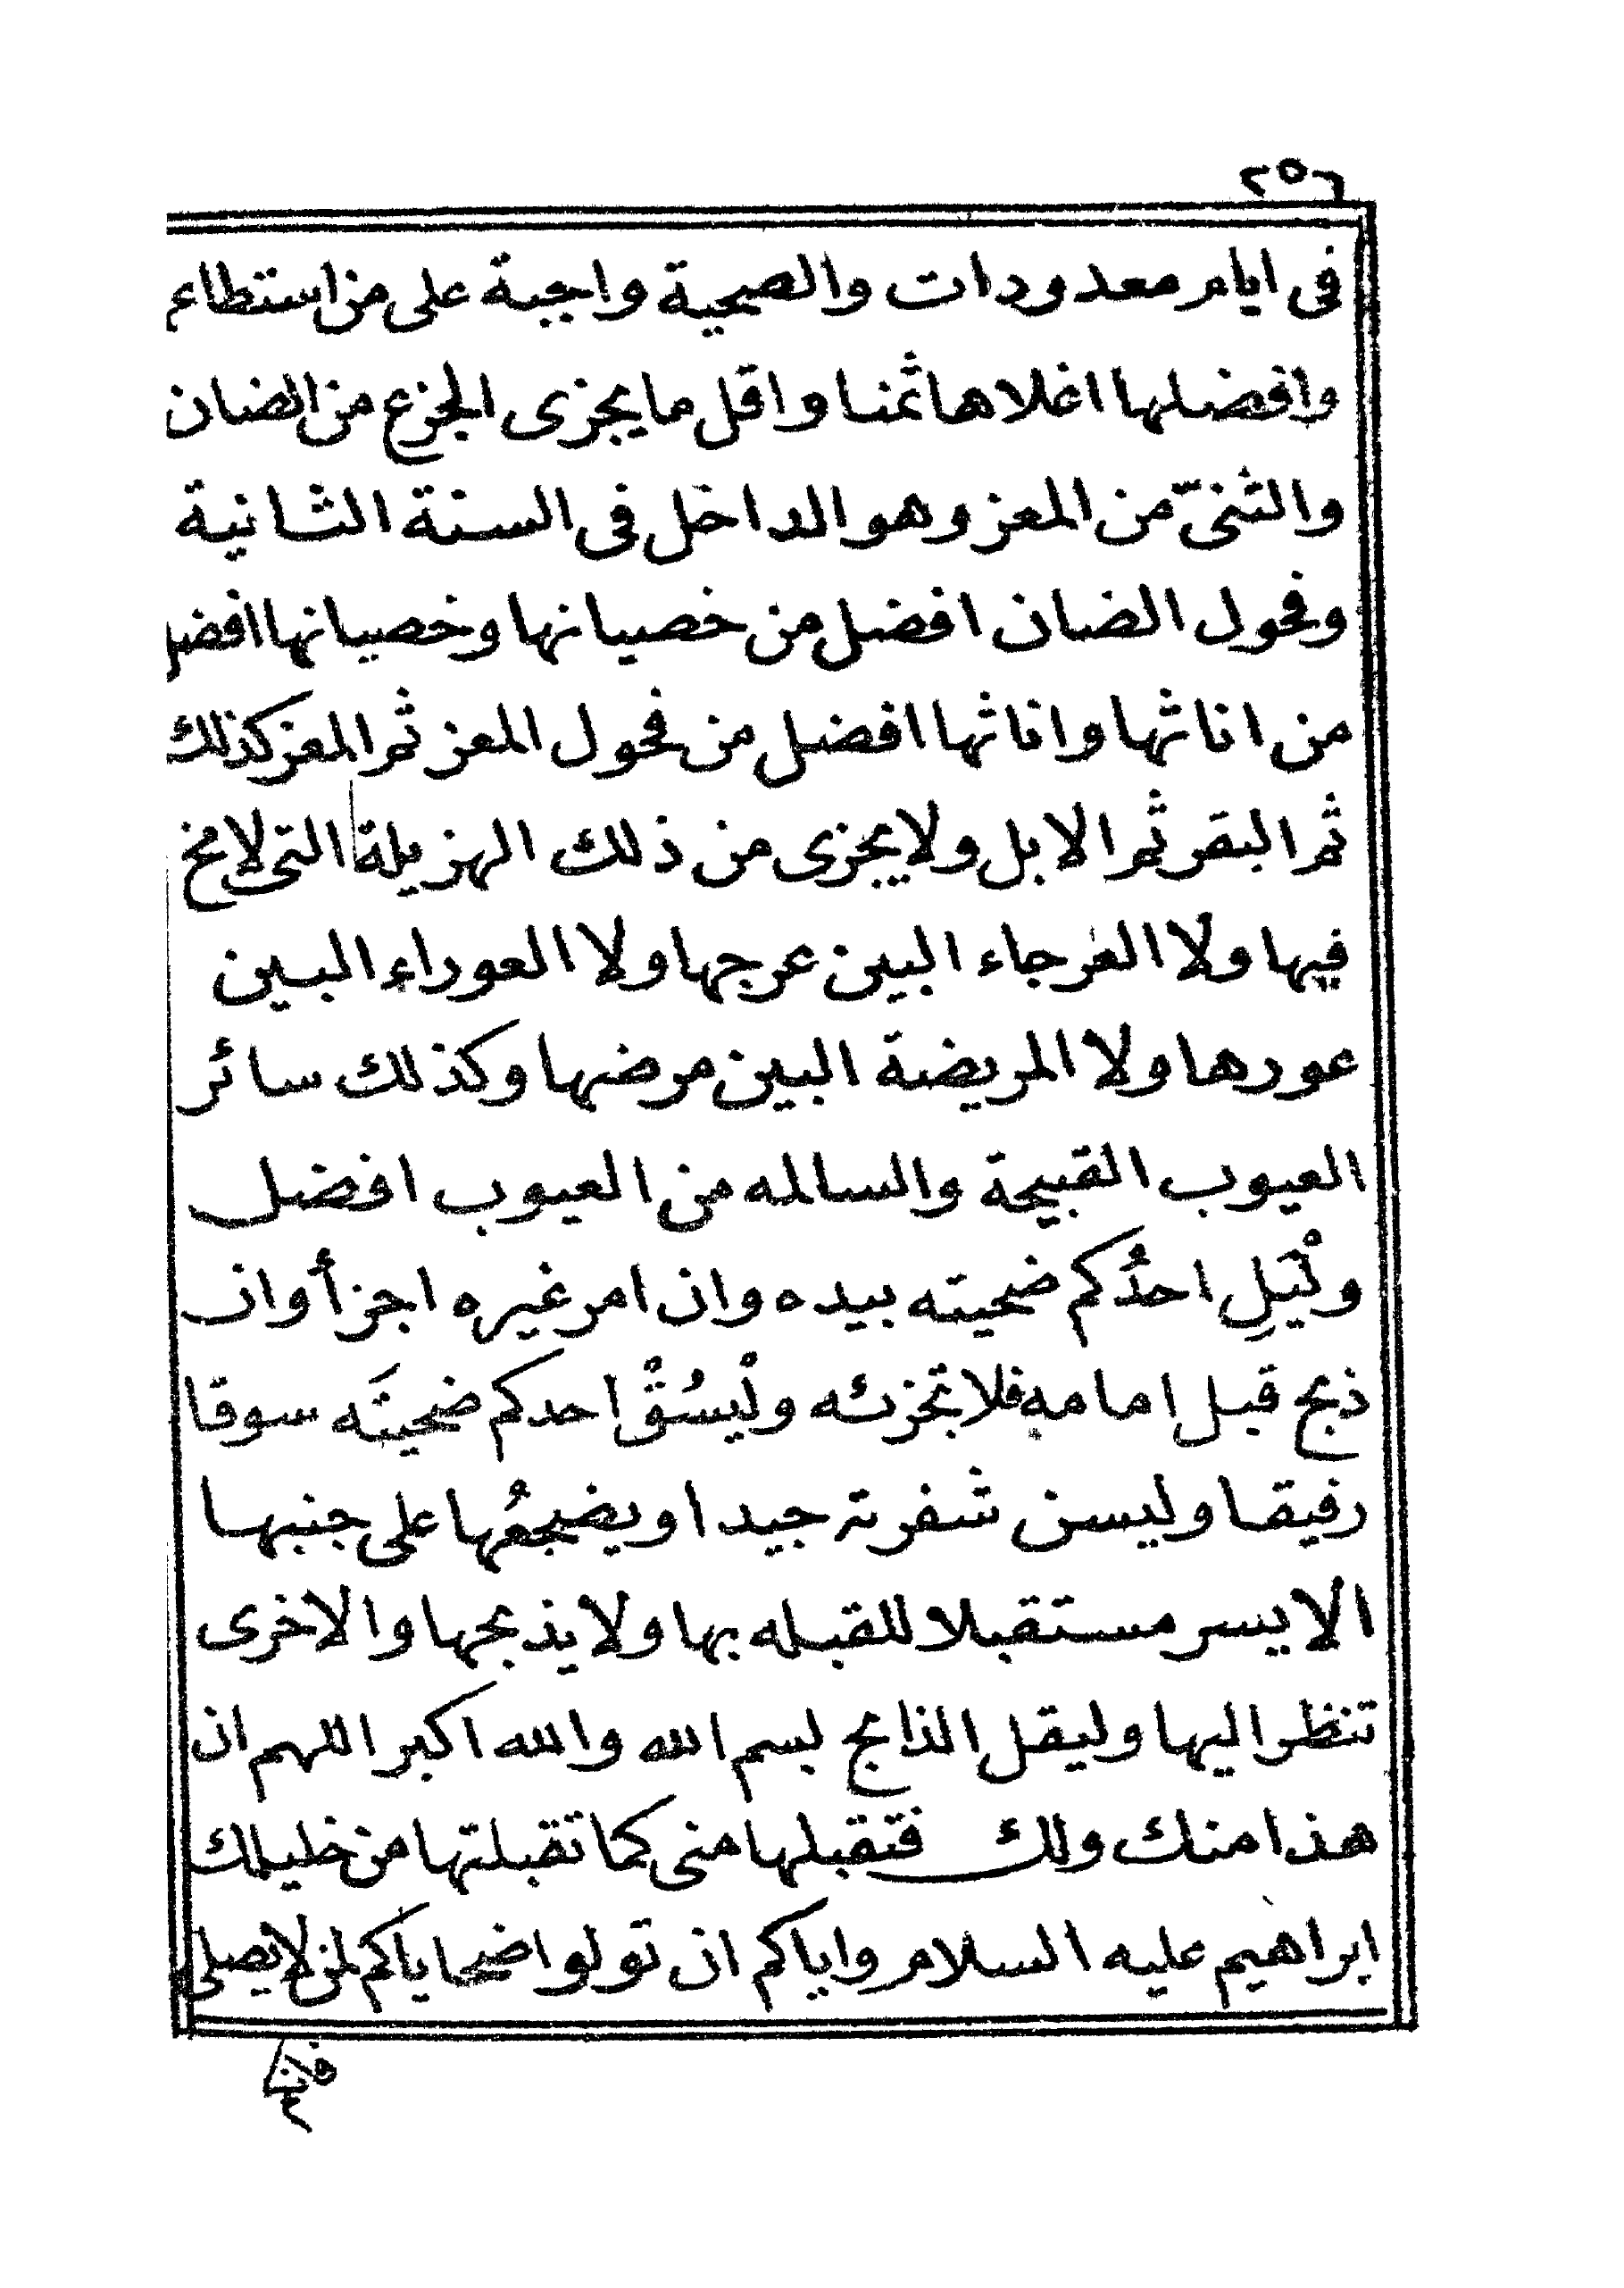 ٢٥٦
فى ايام معدودات والضحية واجبة على من استطاع
وافضلها اغلاها ثمنا واقل ما يجزى الجزع من الضان
والثنىّ من المعز وهو الداخل فى السنة الثانية
وفحول الضان افضل من خصيانها وخصيانها افضل
من اناثها واناثها افضل من فحول المعز ثم المعز كذلك
ثم البقر ثم الابل ولا يجزى من ذلك الهزيلة التى لا مخ
فيها ولا العرجاء البين عرجها ولا العوراء البين
عورها ولا المريضة البين مرضها وكذلك سائر
العيوب القبيحة والسالمه من العيوب افضل
ولْيَلِ احدُكم ضحيته بيده وان امر غيره اجزأ وان
ذبح قبل امامه فلا تجزئه ولْيسُقْ احدكم ضحيتَه سوقا
رفيقا وليسن شفرته جيدا ويضجعُها على جنبها
الايسر مستقبلا للقبله بها ولا يذبحها والاخرى
تنظر اليها وليقل الذابح بسم الله والله اكبر اللهم ان
هذا منك ولك فتقبلها منى كما تقبلتها من خليلك
ابراهيم عليه السلام واياكم ان تولوا ضحاياكم لمن لا يصلى